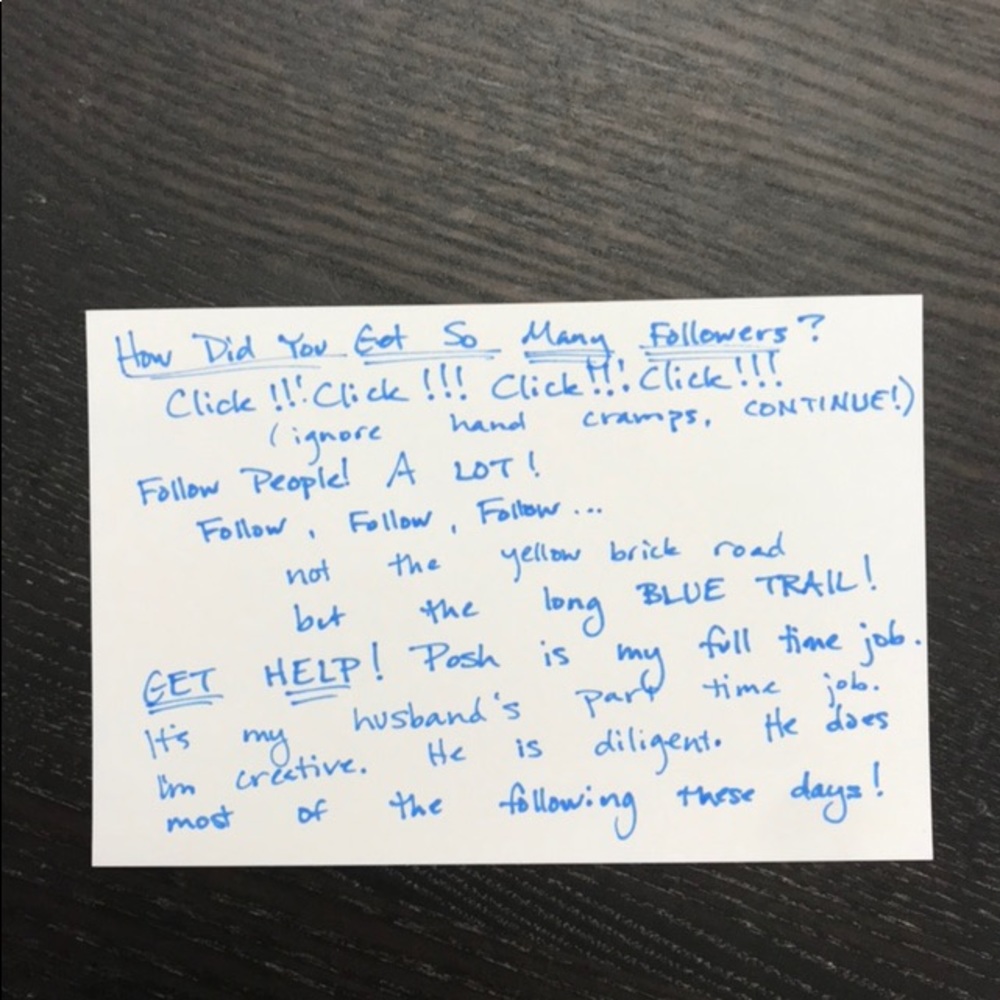 How Did You Get So Many Followers?
Click!!! Click!!! Click!!! Click!!!
(ignore hand cramps, CONTINUE!)
Follow People! A LOT!
Follow, Follow, Follow...
not the yellow brick road
but the long BLUE TRAIL!
GET HELP! Posh is my full time job.
It's my husband's part time job.
I'm creative. He is diligent. He does
most of the following these days!